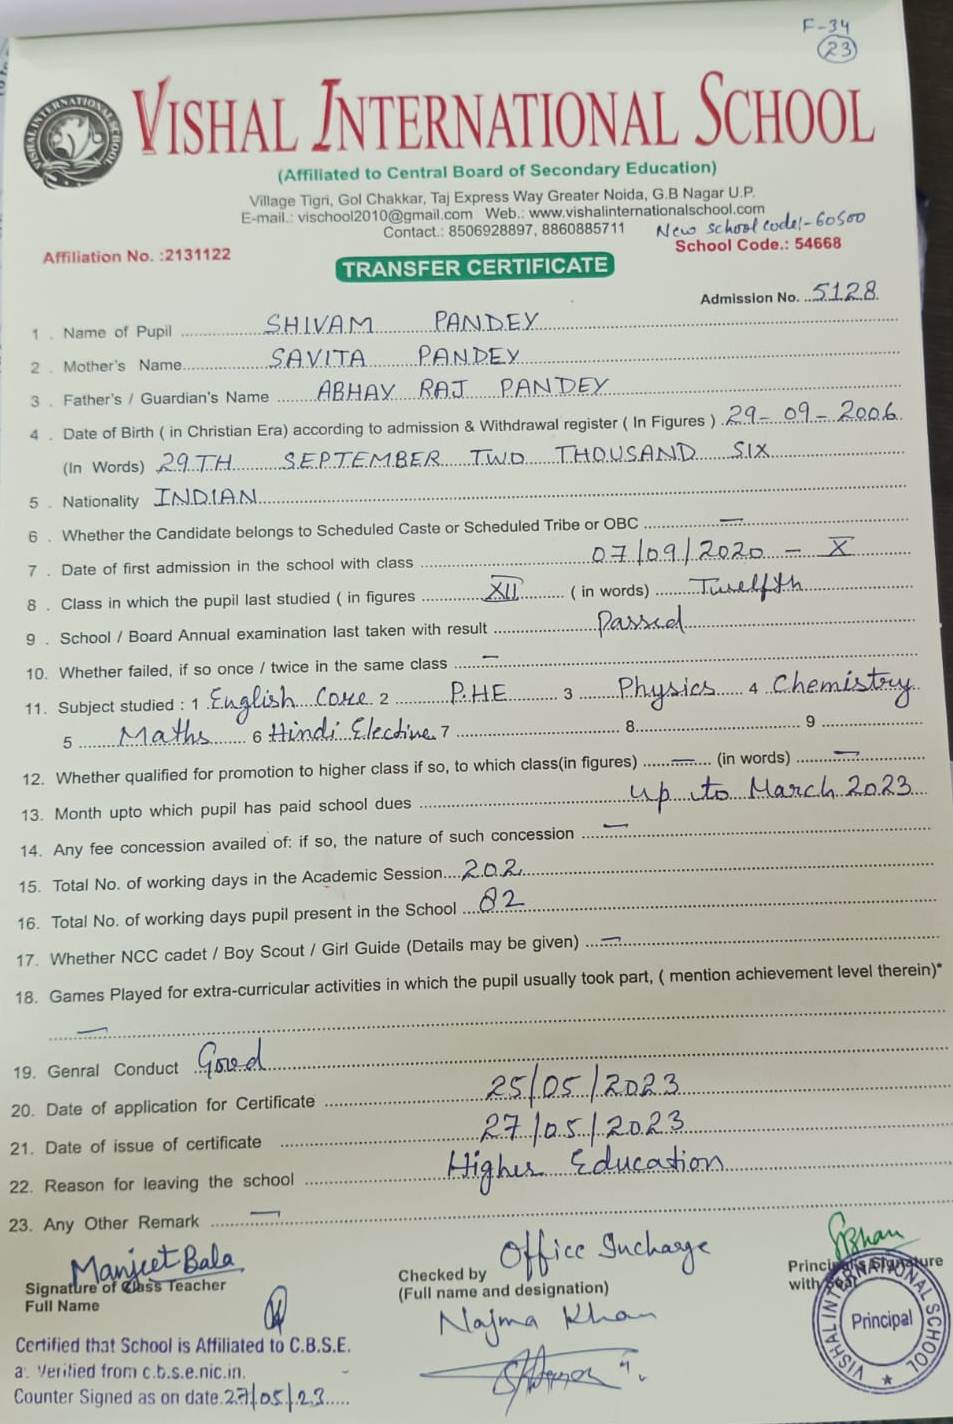 F-34
23
VISHAL INTERNATIONAL SCHOOL
(Affiliated to Central Board of Secondary Education)
Village Tigri, Gol Chakkar, Taj Express Way Greater Noida, G.B Nagar U.P.
E-mail.: vischool2010@gmail.com Web.: www.vishalinternationalschool.com
Contact.: 8506928897, 8860885711 New school code:-60500
Affiliation No. :2131122 School Code.: 54668
TRANSFER CERTIFICATE
Admission No. 5128
1 . Name of Pupil SHIVAM PANDEY
2 . Mother's Name SAVITA PANDEY
3 . Father's / Guardian's Name ABHAY RAJ PANDEY
4 . Date of Birth ( in Christian Era) according to admission & Withdrawal register ( In Figures ) 29-09-2006
(In Words) 29TH SEPTEMBER TWO THOUSAND SIX
5 . Nationality INDIAN
6 . Whether the Candidate belongs to Scheduled Caste or Scheduled Tribe or OBC —
7 . Date of first admission in the school with class 07/09/2020 - X
8 . Class in which the pupil last studied ( in figures XII ( in words) Twelfth
9 . School / Board Annual examination last taken with result Passed
10. Whether failed, if so once / twice in the same class —
11. Subject studied : 1 English Core 2 P.HE 3 Physics 4 Chemistry
5 Maths 6 Hindi Elective 7 8 9
12. Whether qualified for promotion to higher class if so, to which class(in figures) — (in words) —
13. Month upto which pupil has paid school dues up to March 2023
14. Any fee concession availed of: if so, the nature of such concession —
15. Total No. of working days in the Academic Session 202
16. Total No. of working days pupil present in the School 82
17. Whether NCC cadet / Boy Scout / Girl Guide (Details may be given) —
18. Games Played for extra-curricular activities in which the pupil usually took part, ( mention achievement level therein)*
—
19. Genral Conduct Good
20. Date of application for Certificate 25/05/2023
21. Date of issue of certificate 27/05/2023
22. Reason for leaving the school Higher Education
23. Any Other Remark —
Manjeet Bala Office Incharge
Signature of Class Teacher Checked by Principal's Signature
Full Name (Full name and designation) with Seal
Najma Khan
VISHAL INTERNATIONAL SCHOOL
Principal
Certified that School is Affiliated to C.B.S.E.
a. Verified from c.b.s.e.nic.in.
Counter Signed as on date 27/05/23